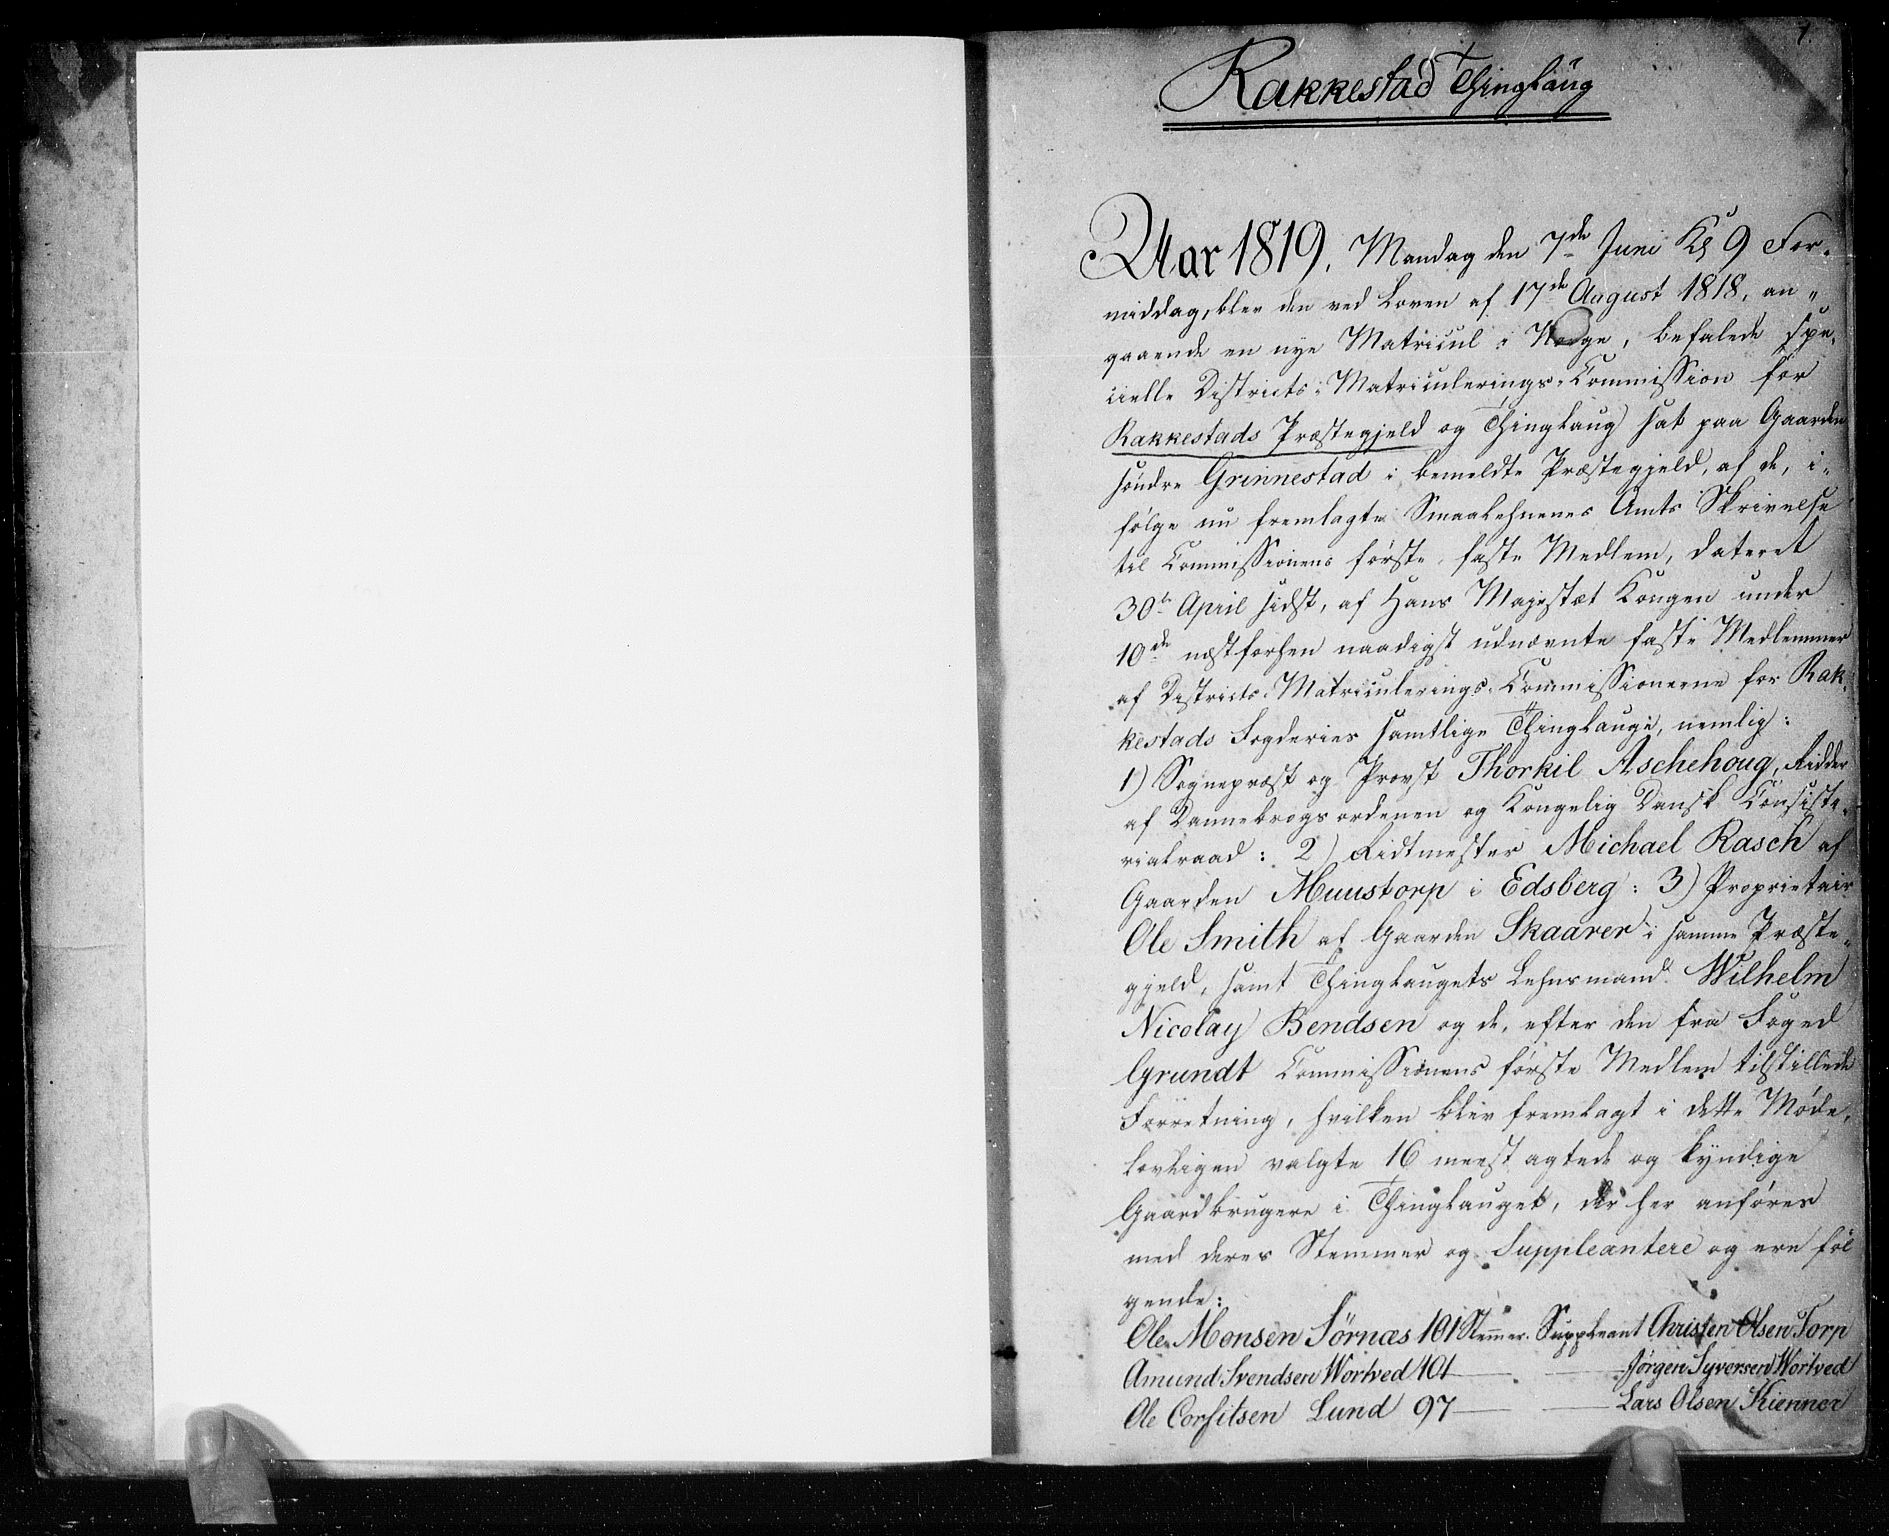 1.
Rakkestad Thinglaug
Aar 1819. Mandag den 7de Juni Kl 9 For-
middag, blev den ved Loven af 17de August 1818, an-
gaaende en nye Matricul i Norge, befalede spe-
cielle Districts-Matriculerings-Commission for
Rakkestads Præstegjeld og Thinglaug sat paa Gaarden
søndre Grinnestad i bemeldte Præstegjeld, af de, i-
følge nu fremlagte Smaalehnenes Amts Skrivelse
til Commissionens første faste Medlem, dateret
30te April sidst, af Hans Majestæt Kongen under
10de næstforhen naadigst udnævnte faste Medlemmer
af Districts-Matriculerings-Commissionerne for Rak-
kestads Fogderies samtlige Thinglauge, nemlig:
1) Sognepræst og Provst Thorkil Aschehoug, Ridder
af Dannebrogsordenen og Kongelig Dansk Consisto-
rialraad: 2) Ridtmester Michael Rasch af
Gaarden Muustorp i Edsberg: 3) Proprietair
Ole Smith af Gaarden Skaarer i samme Præste-
gjeld, samt Thinglaugets Lehnsmand Wilhelm
Nicolay Bendsen og de, efter den fra Foged
Grundt Commissionens første Medlem tilstillede
Forretning, hvilken blev fremlagt i dette Møde,
lovligen valgte 16 meest agtede og kyndige
Gaardbrugere i Thinglauget, der her anføres
med deres Stemmer og Suppleantere og ere føl
gende:
Ole Monsen Sörnæs 101 Stemmer. Suppleant Christen Olsen Torp
Amund Svendsen Wortved 101 — — Jørgen Syversen Wortved
Ole Corfitsen Lund 97 — — Lars Olsen Kienner